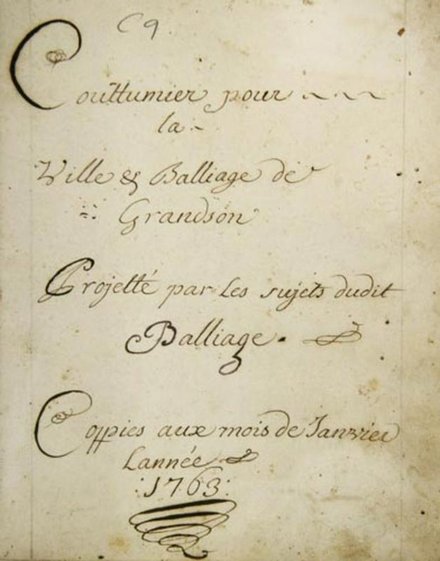 C9
Couttumier pour
la
Ville & Balliage de
Grandson
Projetté par Les sujets dudit
Balliage.
Coppies aux mois de Janvier
Lannée
:1763: